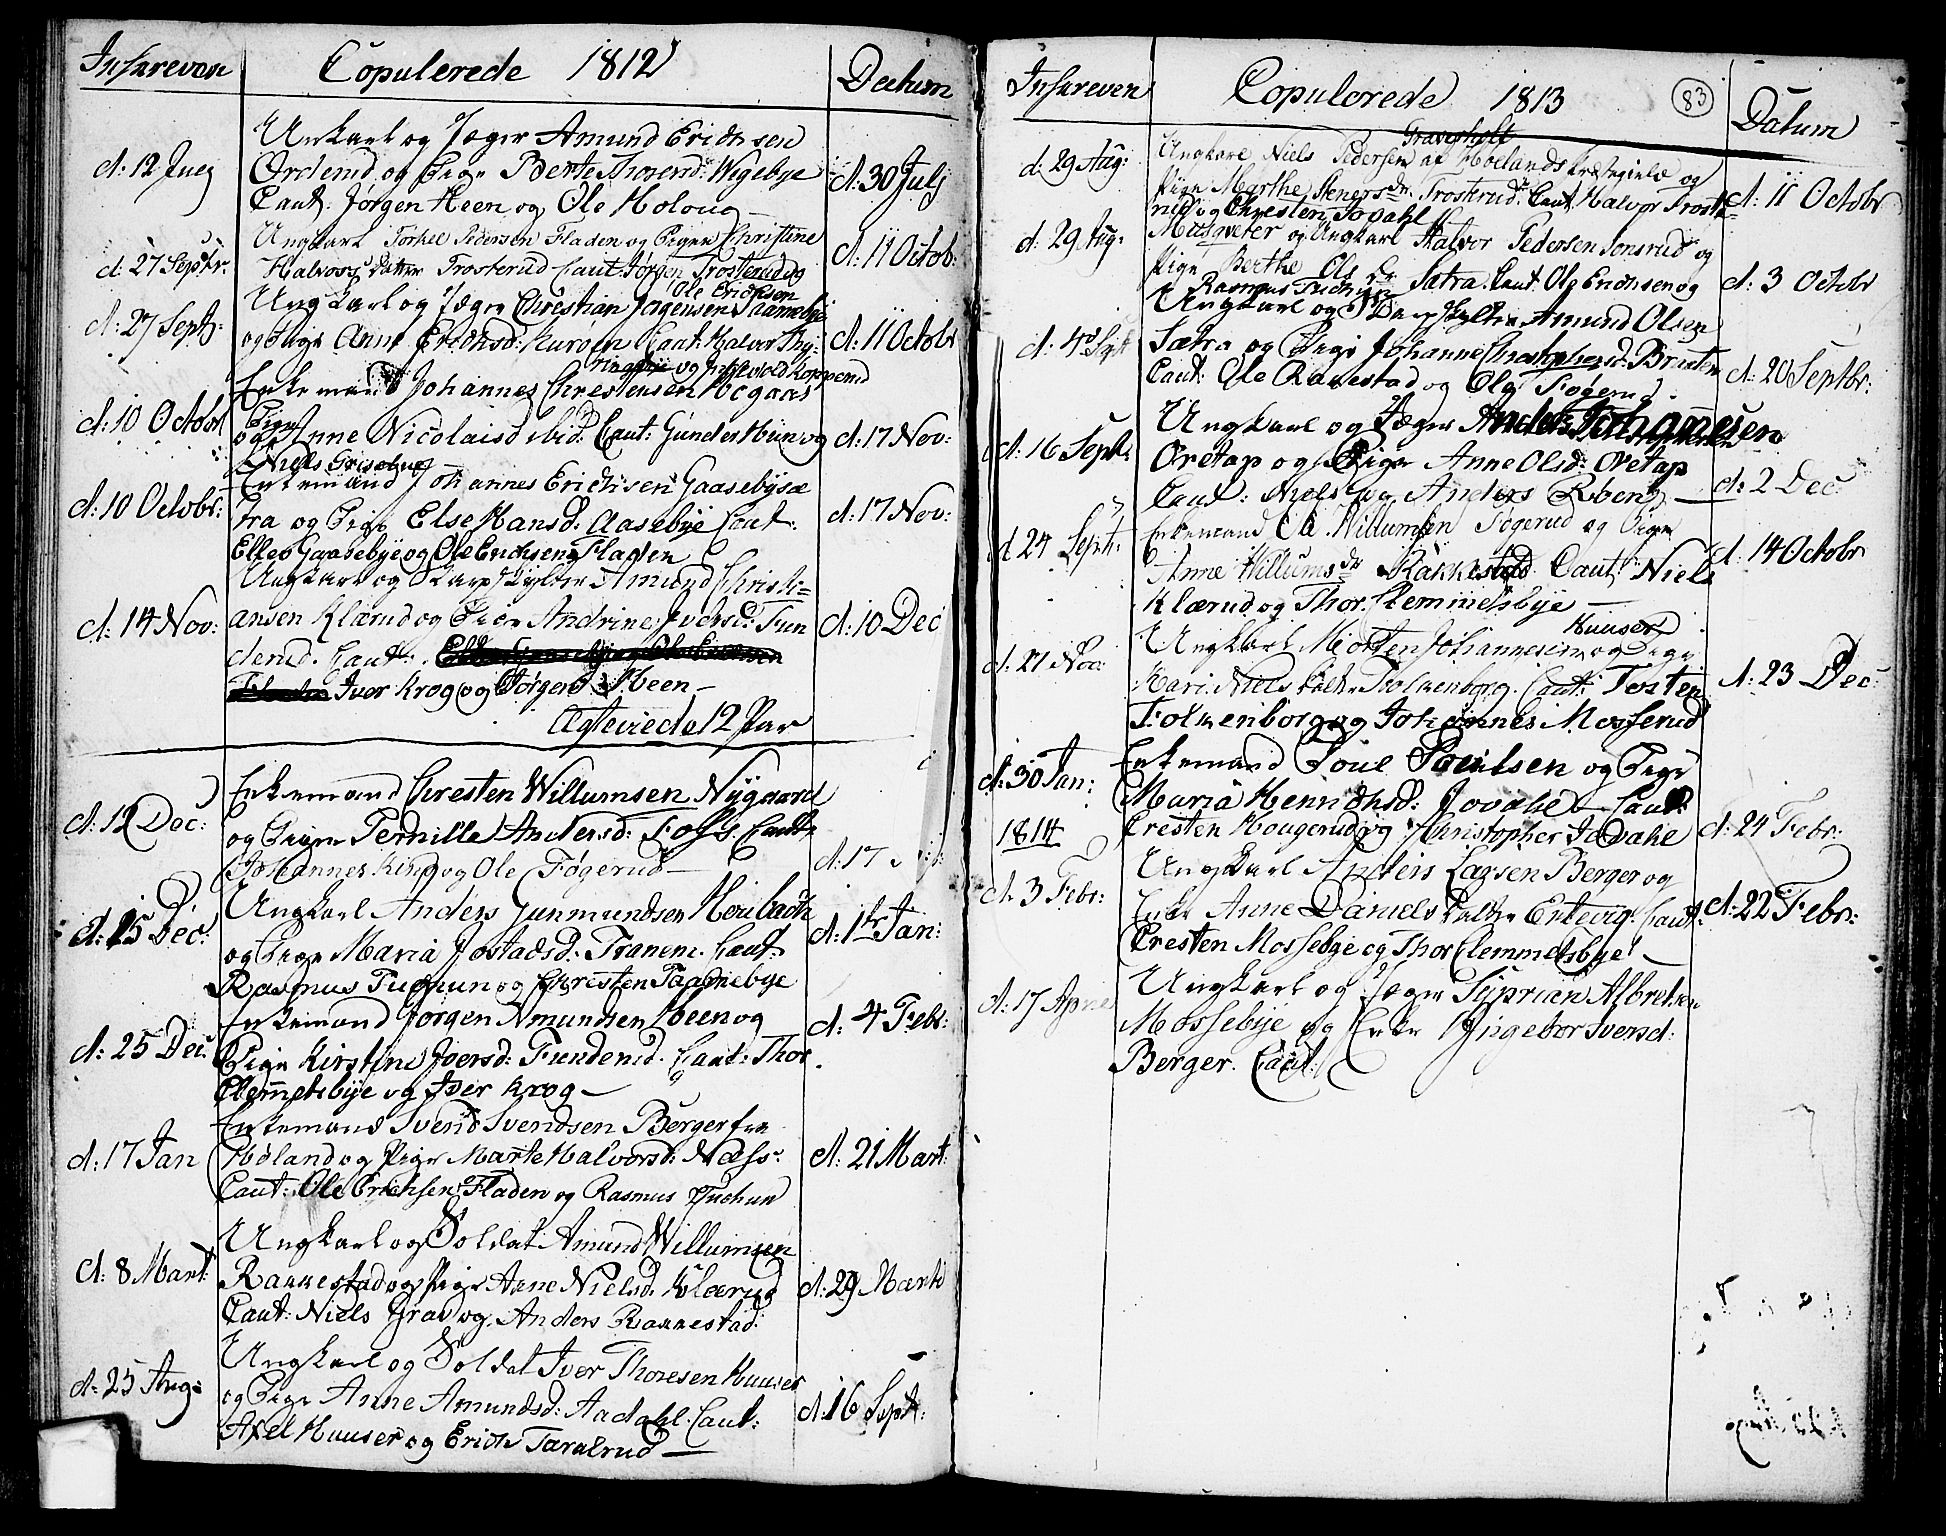 Inskreven Copulerede 1812 Datum
d: 12 Junj
Unkarl og Jæger Amund Erichsen
Orderud og Pige Berte Thorersd: Wigebye
Caut: Jørgen Heen og Ole Moloug
d: 30 Julj
d: 27 Septbr.
Ungkarl Torkel Pedersen Fladen og Pigen Christine
Halvors Datter Trosterud Caut Jørgen Trosterud og
Ole Erichsen
d: 11 Octob:
d: 27 Septr:
Ungkarl og Jæger Christian Jørgensen Taarnebye
og Pige Anne Erichsd: Caut: Halvor Thy-
ringbye og Kopperud
d: 11 Octobr
d: 10 Octobr
Enkemand Johannes Christensen Hogaas
og Pige Anne Nicolaisd ibid: Caut: Gunder Hiin og
Niels Grisebue
d: 17 Nov:
d: 10 Octobr:
Enkemand Johannes Erichsen Gaasebysæ
tra og Pige Else Hansd: Aasebye Caut:
Ellev Gaasebye og Ole Erichsen Fladen
d: 17 Nov:
d: 14 Nov:
Ungkarl og Skarpskytter Amund Christi=
ansen Klærud og Pige Andrine Iversd: Fun
derud. Caut:
Iver Krog og Jørgen Heen —
d: 10 Dec
Ægteviede 12 Par
d: 12 Dec:
Enkemand Christen Willumsen Nygaard
og Pigen Pernille Andersd: Foss. Caut:
Johannes Kind og Ole Føgerud —
d: 17
d: 15 Dec:
Ungkarl Anders Gunmundsen Houbach
og Pige Maria Jostadsd: Tranem. Caut:
Rasmus Tuchun og Christen Taarnebye
d: 1ste Jan:
d: 25 Dec:
Enkemand Jørgen Amundsen Heen og
Pige Kirstine Joersd: Funderud. Caut: Thor
Clemmetsbye og Iver Krog —
d: 4 Febr:
d: 17 Jan
Enkemand Svend Svendsen Berger fra
Høland og Pige Marte Halvorsd: Næss.
Caut: Ole Erichsen Fladen og Rasmus Tuchun
d: 21 Mart:
d: 8 Mart:
Ungkarl og Soldat Amund Willumsen
Rakkestad og Pige Anne Nielsd. Klærud
Caut: Niels Grav og Anders Rakkestad
d: 29 Marti
d: 25 Aug:
Ungkarl og Soldat Iver Thoresen Huuser
og Pige Anne Amundsd: Aadahl. Caut:
Axel Huuser og Erich Taralrud —
d: 16 Sept:
Inskreven Copulerede 1813 83 Datum
d: 29 Aug:
Ungkarl Niels Pedersen af Hoelands Præstegield og
Pige Marthe Stenersdr. Trostrud. Caut Halvor Trost
rud og Christen Topahl
d: 11 Octobr
d: 29 Aug:
og Ungkarl Halvor Pedersen Sonsrud og
Pige Berthe Ols Dr Sætra. Caut Ole Erichsen og
Rasmus Tuchun
d: 3 Octobr
d: 4de Sept
Ungkarl og Skarpskytter Amund Olsen
Sætra og Pige Johanne Christophersd: Braaten
Caut: Ole Rakestad og Ole Føgerud.
d: 20 Septbr:
d: 16 Sept:
Ungkarl og Jæger Anders Johannesen
Oretap og Pige Anne Olsd: Oretap
Caut: Niels og Anders Rben —
d: 2 Dec:
d 24 Sept:
Enkemand Ole Willumsen Føgerud og Pige
Anne Willumsdr Rakkestad. Caut: Niels
Klærud og Thor Clemmetsbye —
d: 14 Octobr
d: 21 Nov:
Huuser
Ungkarl Morten Johannesen og Pige
Kari Niels Datter Folkenborg. Caut: Tosten
Folkenborg og Johannes Mosserud
d: 23 Dec:
d: 30 Jan:
1814
Enkemand Poul Poulsen og Pige
Maria Henrichsd: Jovahl — Caut:
Cresten Hougerud og Christopher Jovahl
d: 24 Febr:
d. 3 Febr:
Ungkarl Anders Larsen Berger og
Enke Anne Daniels Datter Ertevig. Caut:
Cresten Mossebye og Thor Clemmetsbye —
d: 22 Febr:
d: 17 April
Ungkarl og Jæger Syprian Albretsen
Mossebye og Enke Ingebor Svensd:
Berger. Caut: